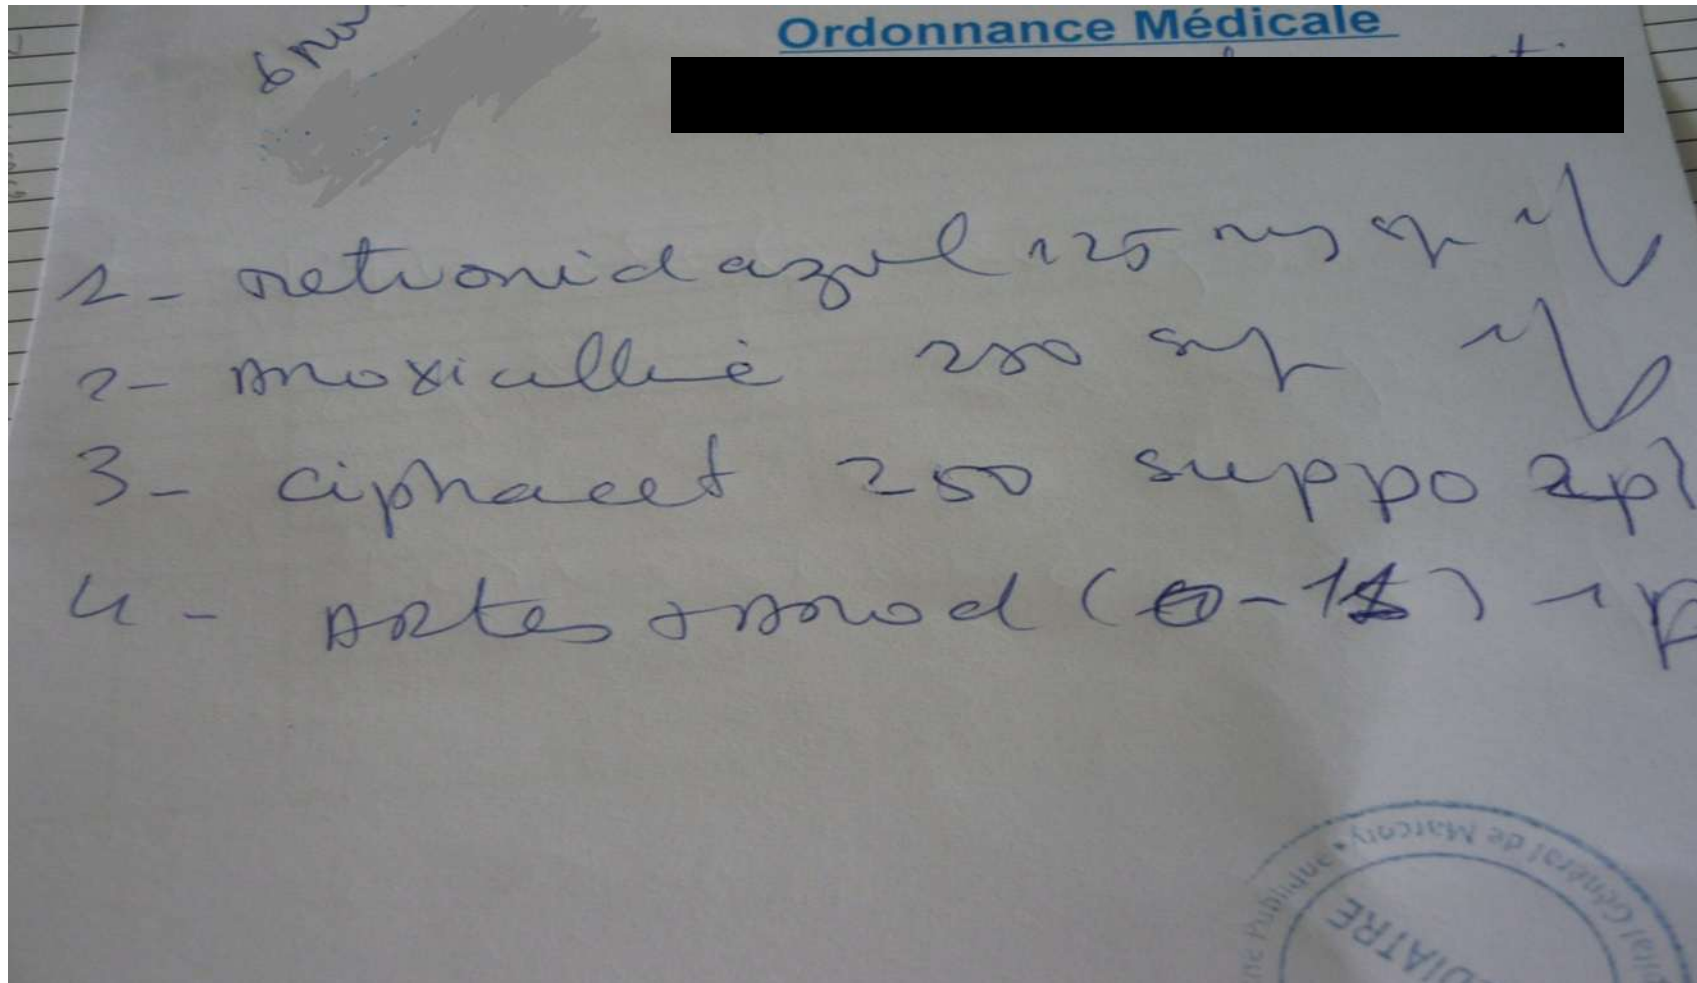 Ordonnance Médicale
1 - metronidazol 125 mg sp 1 fl
2 - Amoxicilline 250 sp 1 fl
3 - ciphacet 250 suppo 2pl
4 - Artes + Amod ( - 11) 1 p
Hôpital Général de Marcory • 
Publique
DIATRE